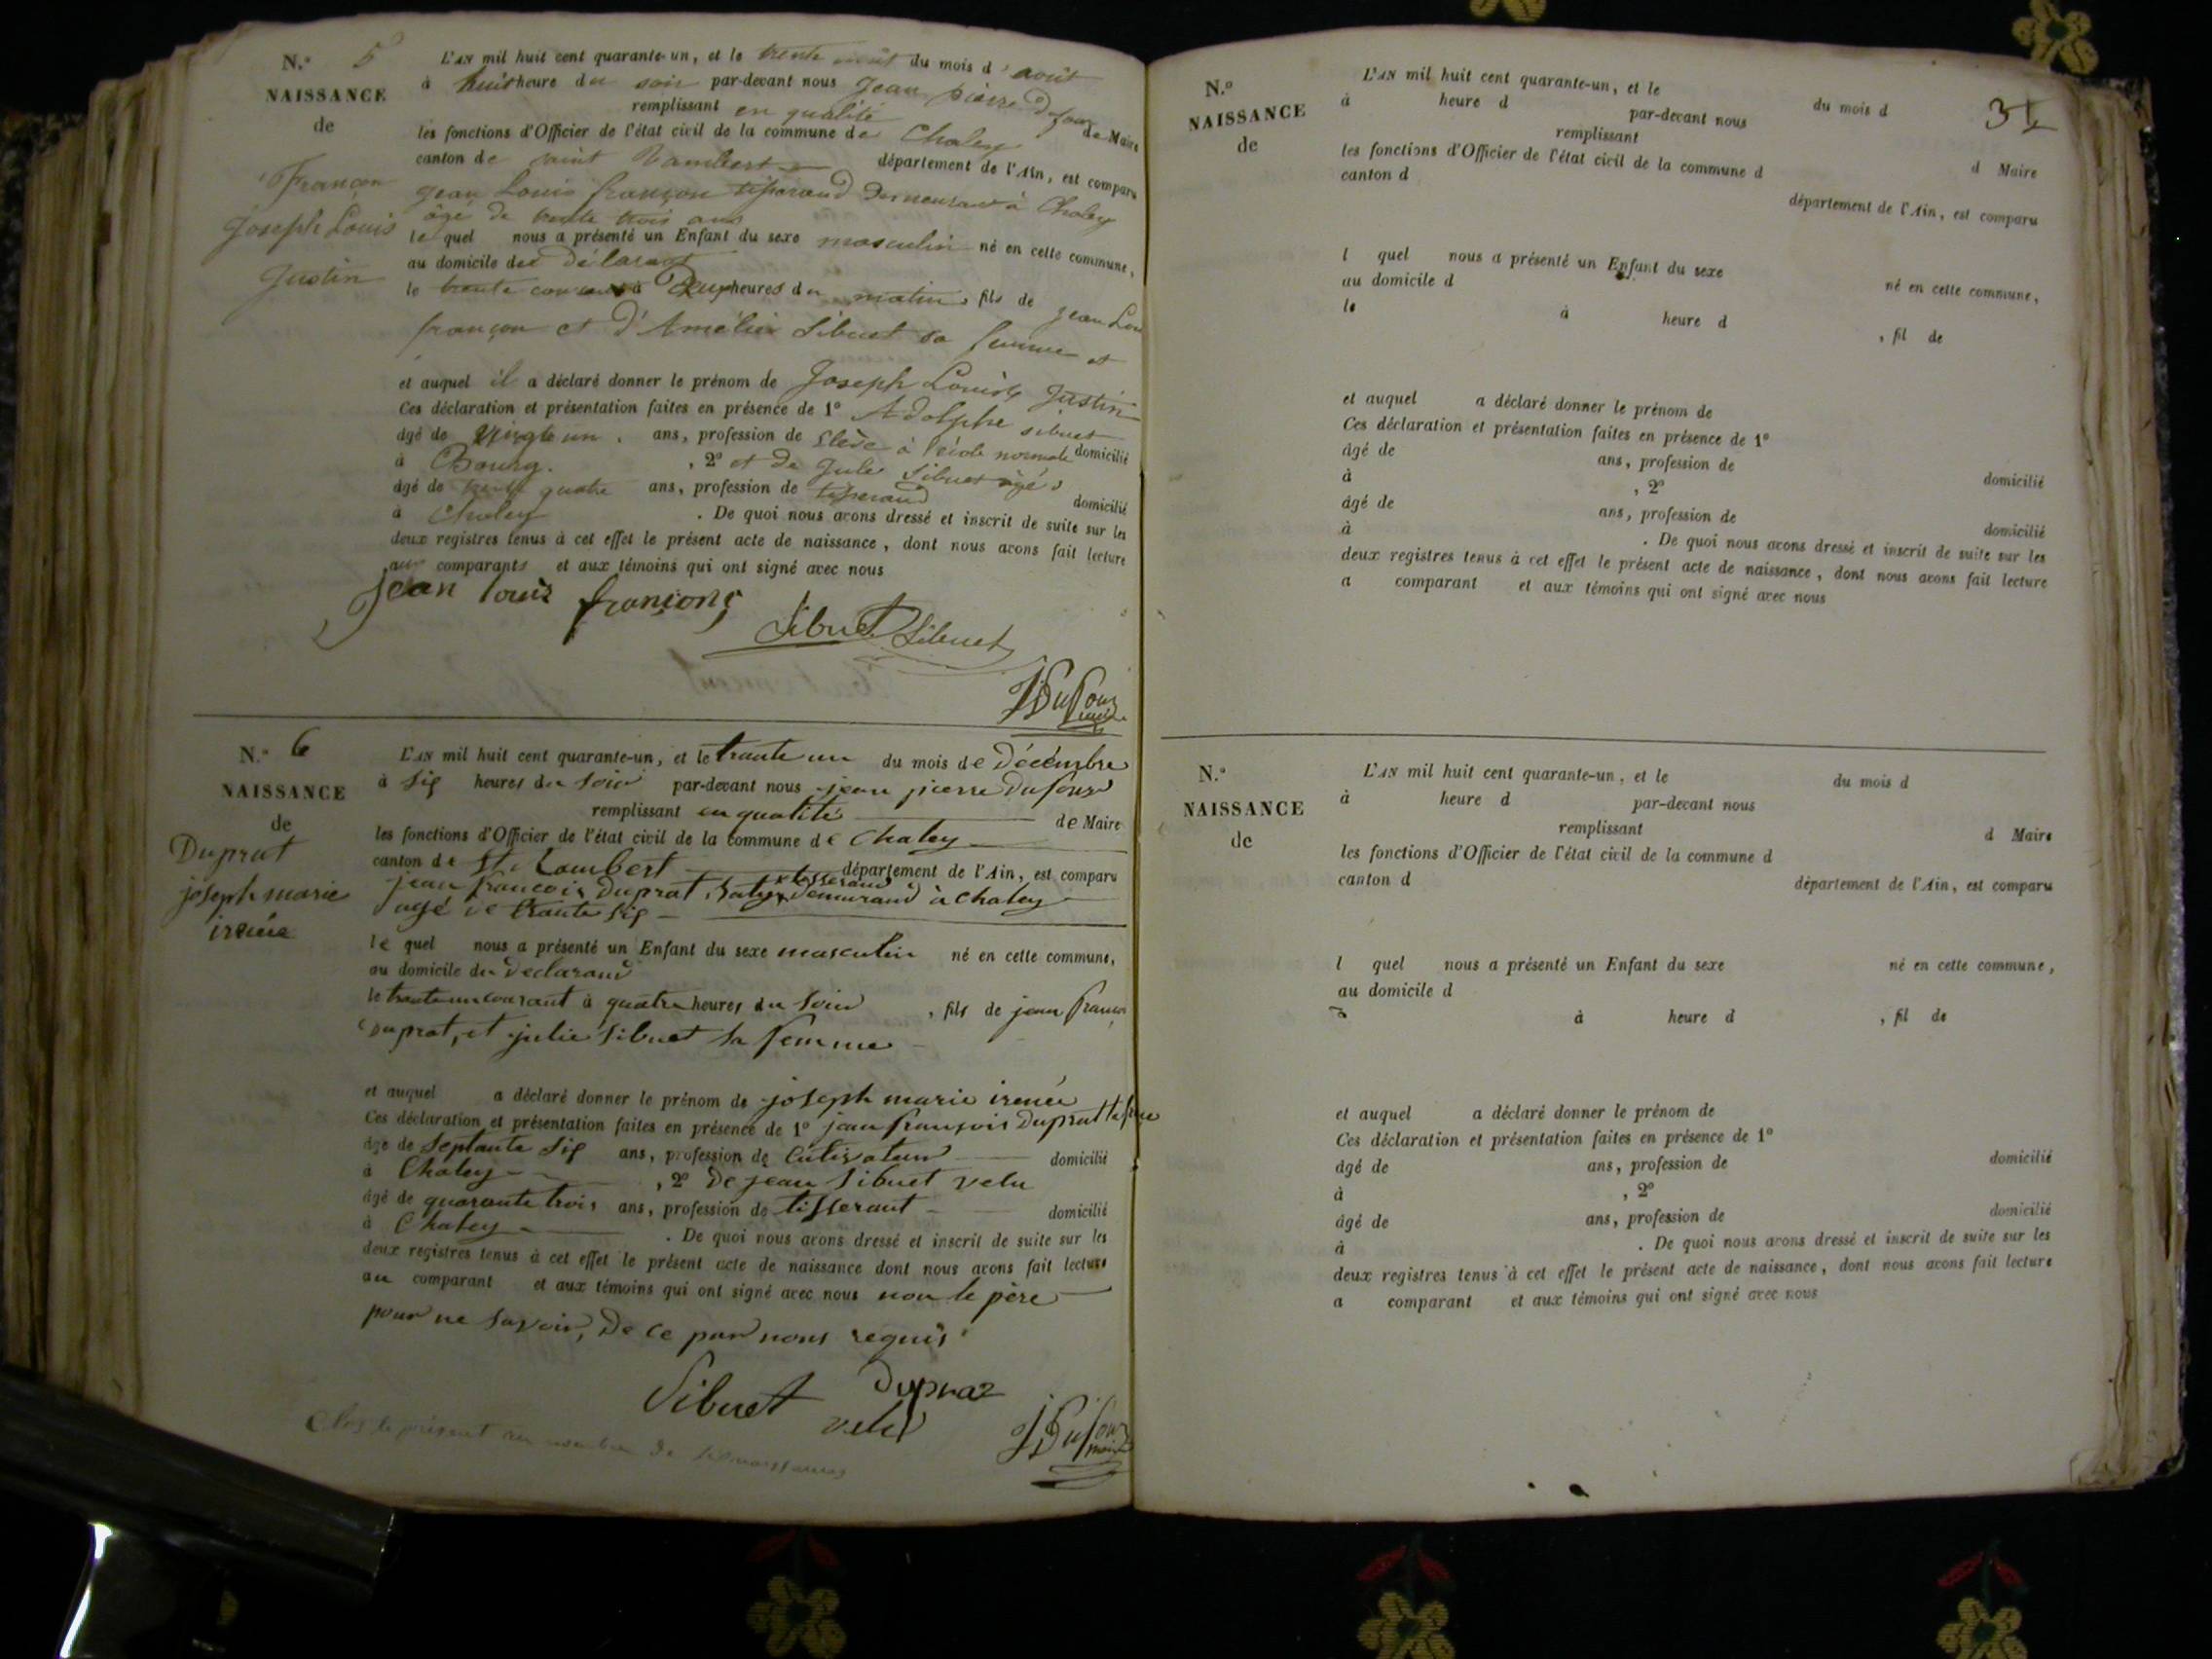 N.º 5
NAISSANCE
de
Françon
Joseph Louis
Justin
L'AN mil huit cent quarante-un, et le trente du mois d'août
à huit heure du soir par-devant nous Jean pierre Dufour
remplissant en qualité de Maire
les fonctions d'Officier de l'état civil de la commune de Chaley
canton de saint Rambert département de l'Ain, est comparu
jean Louis françon tisserand Demeurant à Chaley
âgé de trente trois ans
le quel nous a présenté un Enfant du sexe masculin né en cette commune,
au domicile du déclarant
le trente courant à heures du matin, fils de jean Lou
françon et d'Amélie Sibuet sa femme et
et auquel il a déclaré donner le prénom de Joseph Louis Justin
Ces déclaration et présentation faites en présence de 1º Adolphe sibuet
âgé de vingt un ans, profession de élève à l'école normale domicilié
à Bourg. , 2º et de Jule Sibuet âgé
âgé de trente quatre ans, profession de tisserand domicilié
à Chaley . De quoi nous avons dressé et inscrit de suite sur les
deux registres tenus à cet effet le présent acte de naissance, dont nous avons fait lecture
aux comparants et aux témoins qui ont signé avec nous
jean louis françong
Sibuet Sibuet
JPDufour
maire
N.º 6
NAISSANCE
de
Duprat
joseph marie
irénée
L'AN mil huit cent quarante-un, et le trante un du mois de Décembre
à sis heures du soir par-devant nous jean pierre Dufour
remplissant en qualité de Maire
les fonctions d'Officier de l'état civil de la commune de Chaley
canton de St Rambert département de l'Ain, est comparu
tisserand
jean francois Duprat demurand à chaley
agé de trante sis
le quel nous a présenté un Enfant du sexe masculin né en cette commune,
au domicile du declarand
le trante un courant à quatre heures du soir , fils de jean franco
Duprat, et julie Sibuet sa femme
et auquel a déclaré donner le prénom de joseph marie irenée
Ces déclaration et présentation faites en présence de 1º jean françois Duprat
âgé de septante sis ans, profession de cutivateur domicilié
à Chaley , 2º De jean Sibuet velu
âgé de quarante trois ans, profession de tisserant domicilié
à Chaley . De quoi nous avons dressé et inscrit de suite sur les
deux registres tenus à cet effet le présent acte de naissance dont nous avons fait lecture
au comparant et aux témoins qui ont signé avec nous non le père
pour ne savoir, De ce par nous requis
Sibuet Dupraz
velu
JPDufour
maire
Clos le présent au nombre de six naissances
34
N.º
NAISSANCE
de
L'AN mil huit cent quarante-un, et le du mois d
à heure d par-devant nous
remplissant d Maire
les fonctions d'Officier de l'état civil de la commune d
canton d département de l'Ain, est comparu
l quel nous a présenté un Enfant du sexe né en cette commune,
au domicile d
le à heure d , fil de
et auquel a déclaré donner le prénom de
Ces déclaration et présentation faites en présence de 1º
âgé de ans, profession de domicilié
à , 2º
âgé de ans, profession de domicilié
à . De quoi nous avons dressé et inscrit de suite sur les
deux registres tenus à cet effet le présent acte de naissance, dont nous avons fait lecture
a comparant et aux témoins qui ont signé avec nous
N.º
NAISSANCE
de
L'AN mil huit cent quarante-un, et le du mois d
à heure d par-devant nous
remplissant d Maire
les fonctions d'Officier de l'état civil de la commune d
canton d département de l'Ain, est comparu
l quel nous a présenté un Enfant du sexe né en cette commune,
au domicile d
à heure d , fil de
et auquel a déclaré donner le prénom de
Ces déclaration et présentation faites en présence de 1º
âgé de ans, profession de domicilié
à , 2º
âgé de ans, profession de domicilié
à . De quoi nous avons dressé et inscrit de suite sur les
deux registres tenus à cet effet le présent acte de naissance, dont nous avons fait lecture
a comparant et aux témoins qui ont signé avec nous